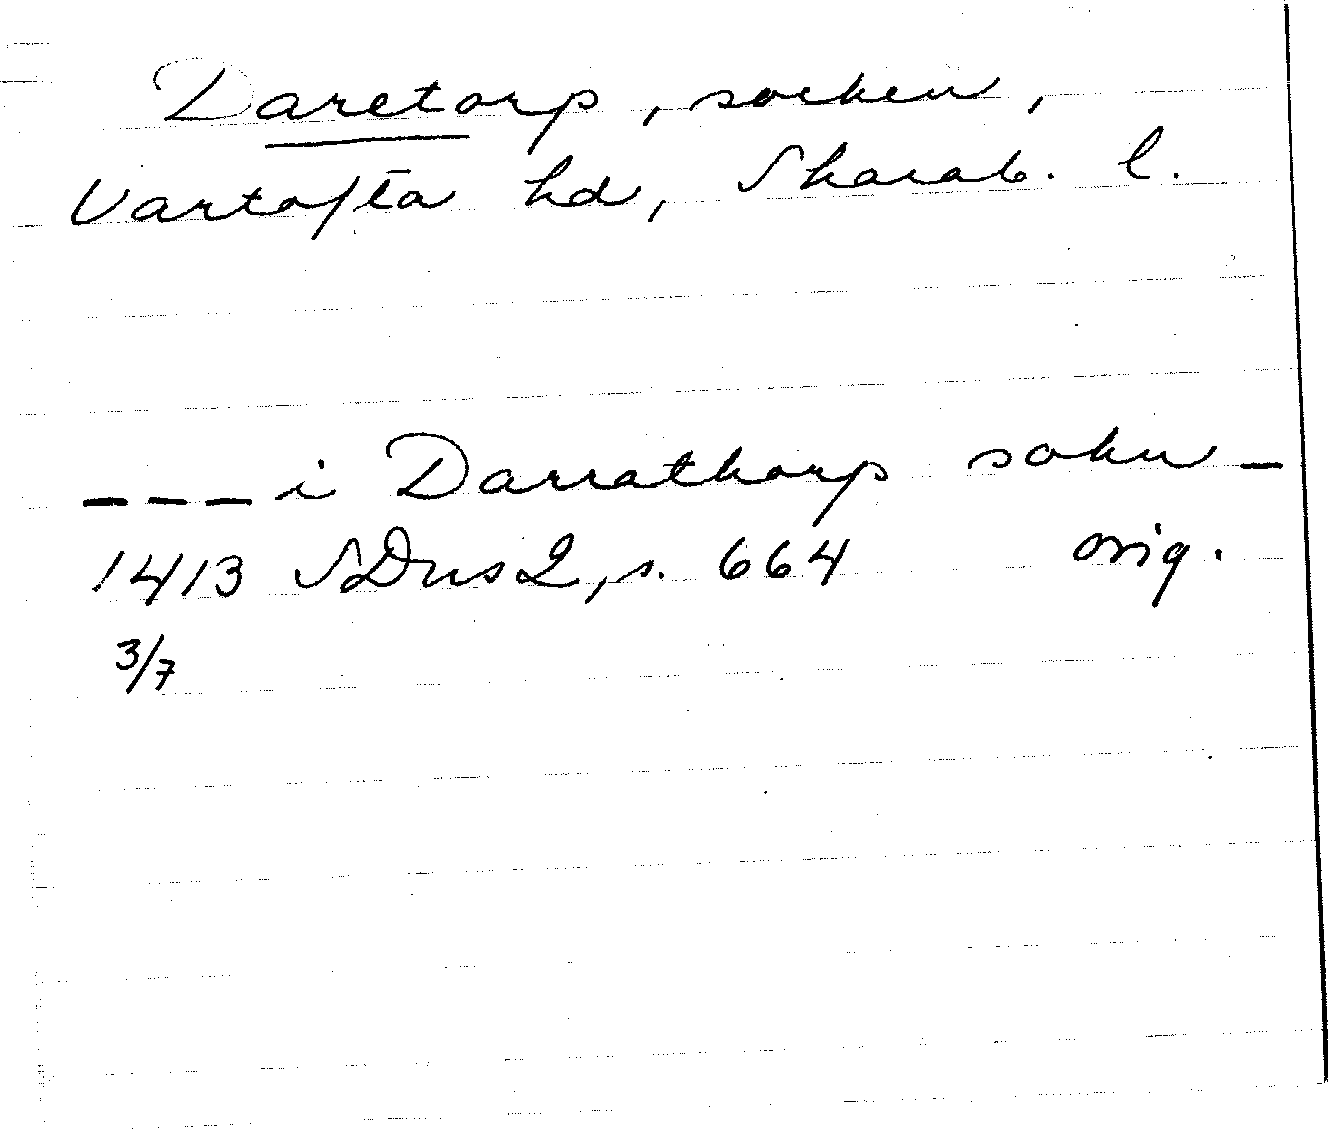 Daretorp, socken,
Vartofta hd, Skarab. l.
--- i Darrathorp sokn -
1413 SDns2, s. 664 orig.
3/7